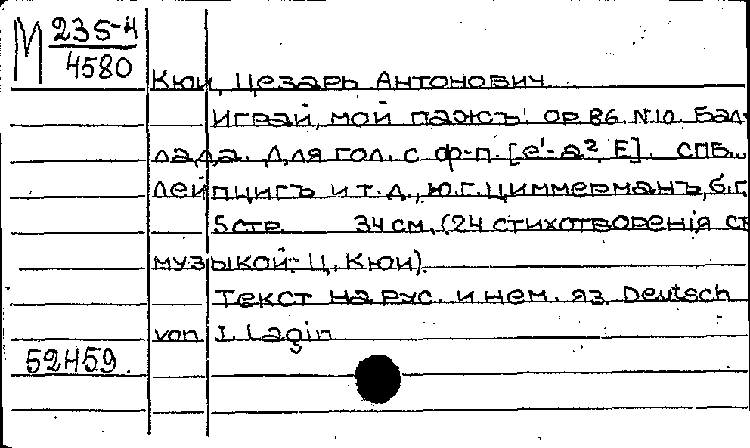 М 235-4
4580
Кюи, Цезарь Антонович
Играй, мой пажъ! ор. 86. N.10. Бал-
лада. Для гол. с ф-п. [e'-a², E]. СПБ.,
Лейпцигъ и т.д., Ю.Г. Циммерманъ, б.г.
5 стр. 34 см. (24 стихотворенія съ
музыкой Ц. Кюи).
Текст на рус. и нем. яз. Deutsch
von I. Lagin
52Н59.